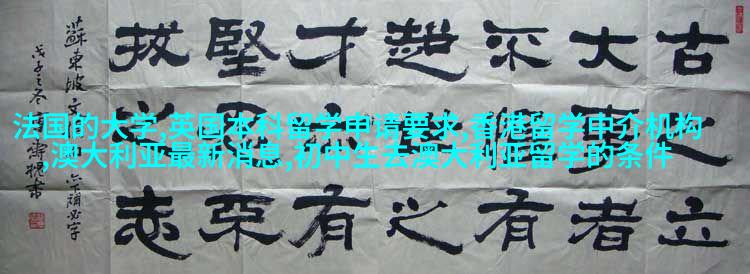 古之立
大事者
不惟有
超世之
才必有
堅忍不
拔之志
蘇東坡
戊子之冬
法国的大学,英国本科留学申请要求,香港留学中介机构
,澳大利亚最新消息,初中生去澳大利亚留学的条件